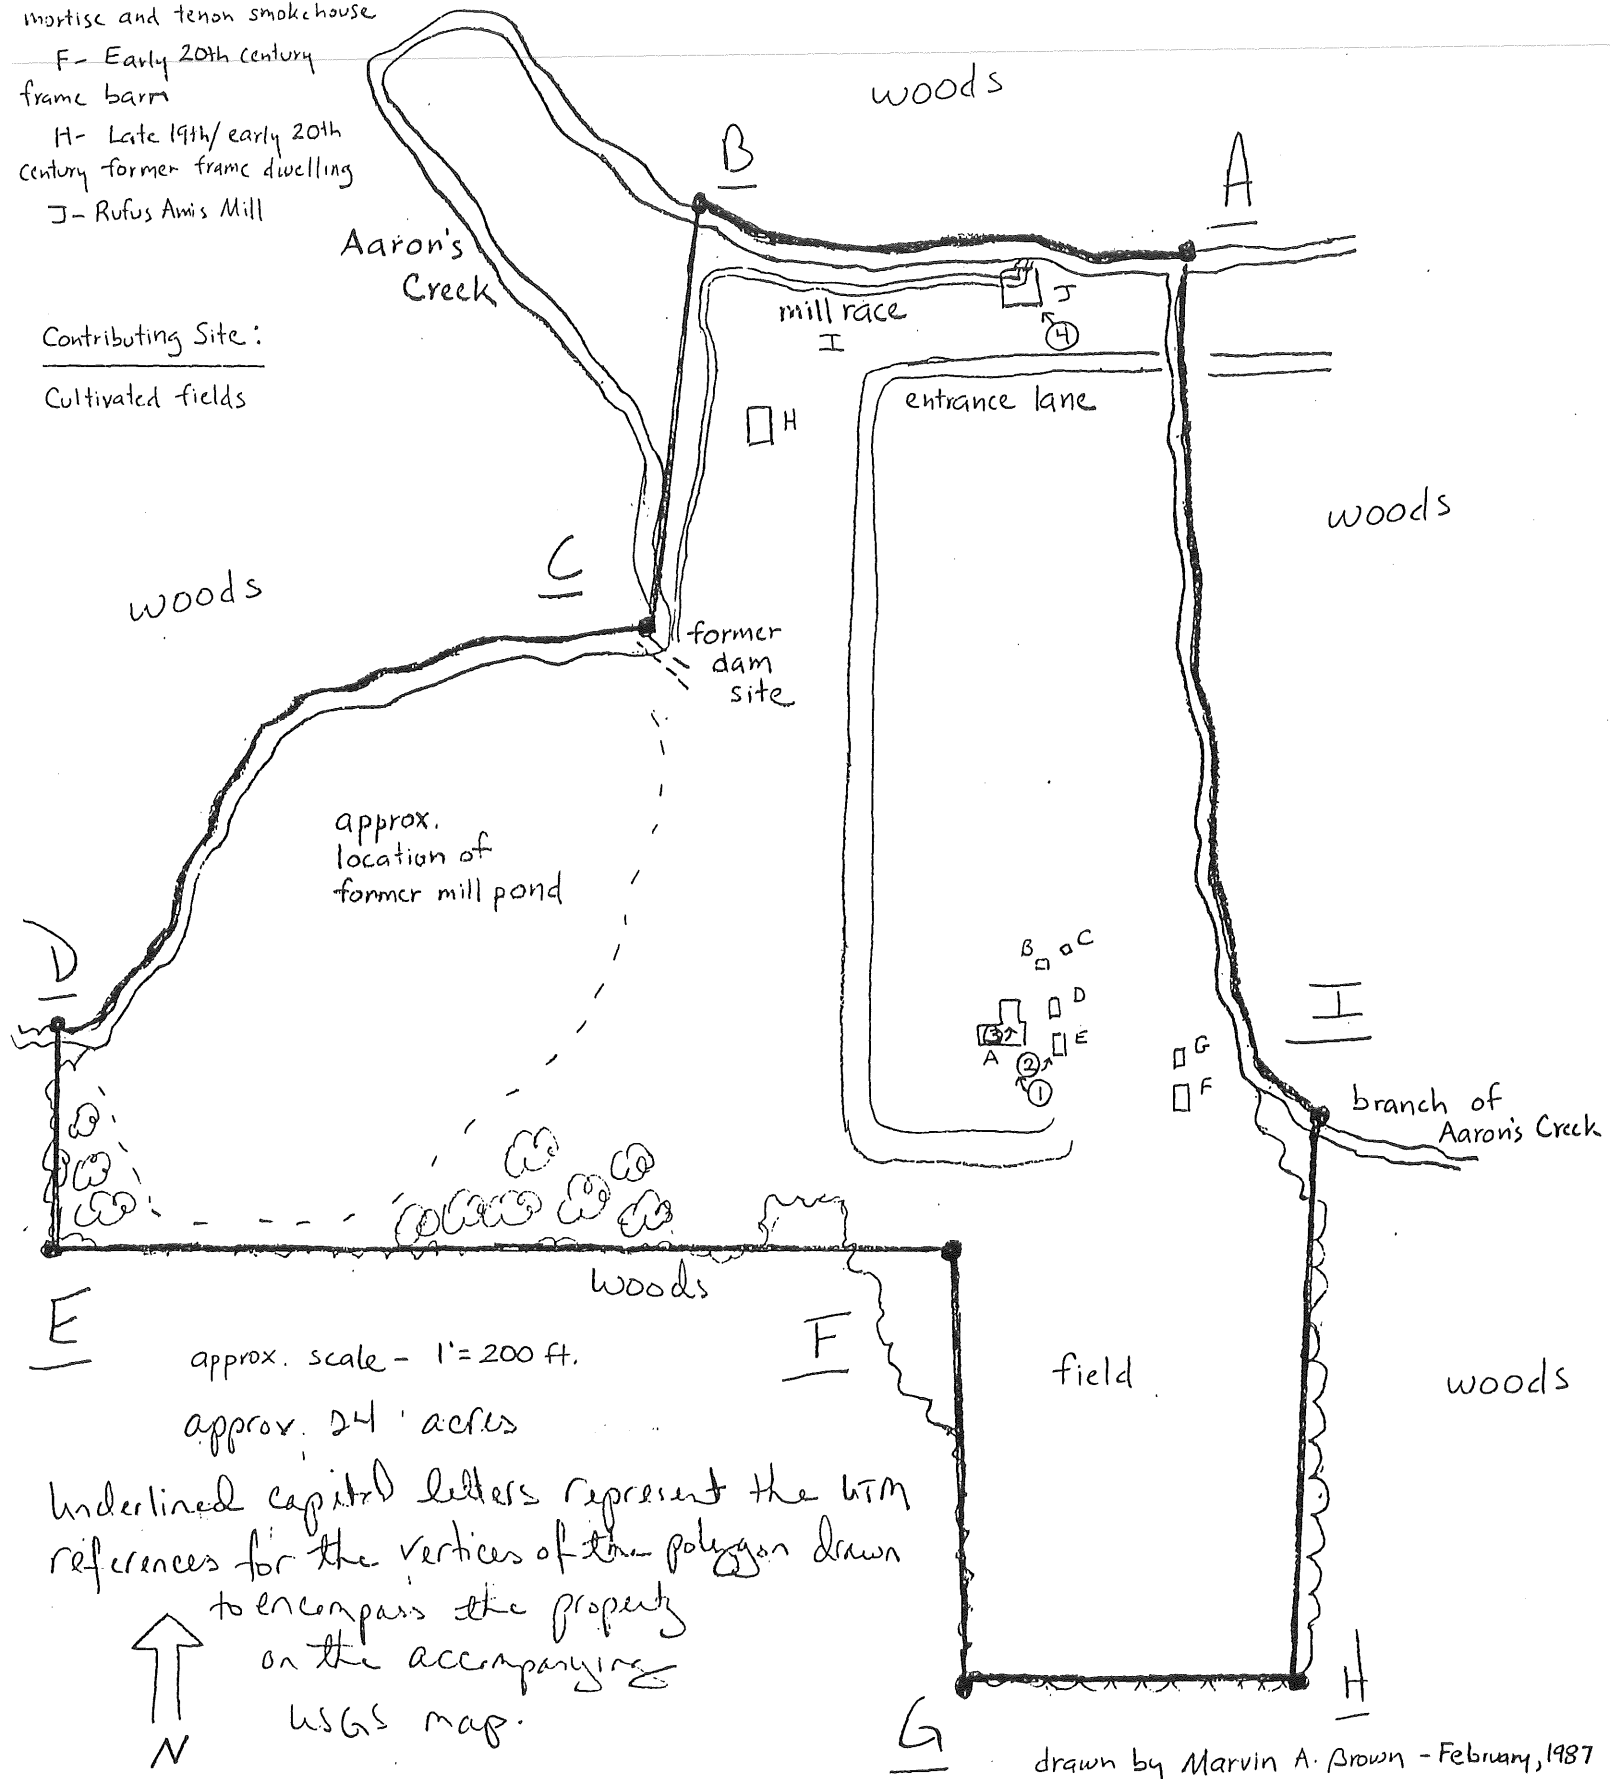 mortise and tenon smokehouse
F- Early 20th century
frame barn
H- Late 19th/early 20th
century former frame dwelling
J- Rufus Amis Mill
woods
B
A
Aaron's
Creek
mill race
I
J
4
Contributing Site:
Cultivated fields
entrance lane
H
woods
C
woods
former
dam
site
approx.
location of
former mill pond
D
B
C
D
3
A
E
2
1
I
G
F
branch of
Aaron's Creek
woods
E
F
approx. scale - 1"=200 ft.
field
woods
approx. 24 acres
Underlined capital letters represent the UTM
references for the vertices of the polygon drawn
to encompass the property
on the accompanying
USGS map.
N
G
H
drawn by Marvin A. Brown - February, 1987